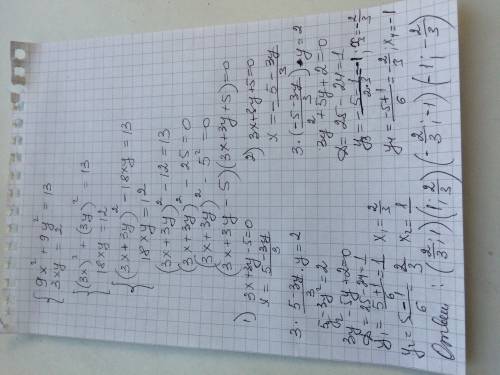 { 9x² + 9y² = 13
3xy = 2
{ (3x)² + (3y)² = 13
18xy = 12
{ (3x+3y)² - 18xy = 13
18xy = 12
(3x+3y)² - 12 = 13
(3x+3y)² - 25 = 0
(3x+3y)² - 5² = 0
(3x+3y-5)(3x+3y+5)=0
1) 3x+3y-5=0
x = (5-3y)/3
3 · (5-3y)/3 · y = 2
5y-3y²=2
3y²-5y+2=0
D=25-24=1
y₁ = (5+1)/6 = 1 x₁ = 2/3
y₂ = (5-1)/6 = 2/3 x₂ = 1
2) 3x+3y+5=0
x = (-5-3y)/3
3·(-5-3y)/3 · y = 2
3y²+5y+2=0
D=25-24=1
y₃ = (-5-1)/(2·3) = -1; x₃ = -2/3
y₄ = (-5+1)/6 = -2/3; x₄ = -1
Ответ: (2/3;1)(1;2/3)(-2/3;-1)(-1;-2/3)